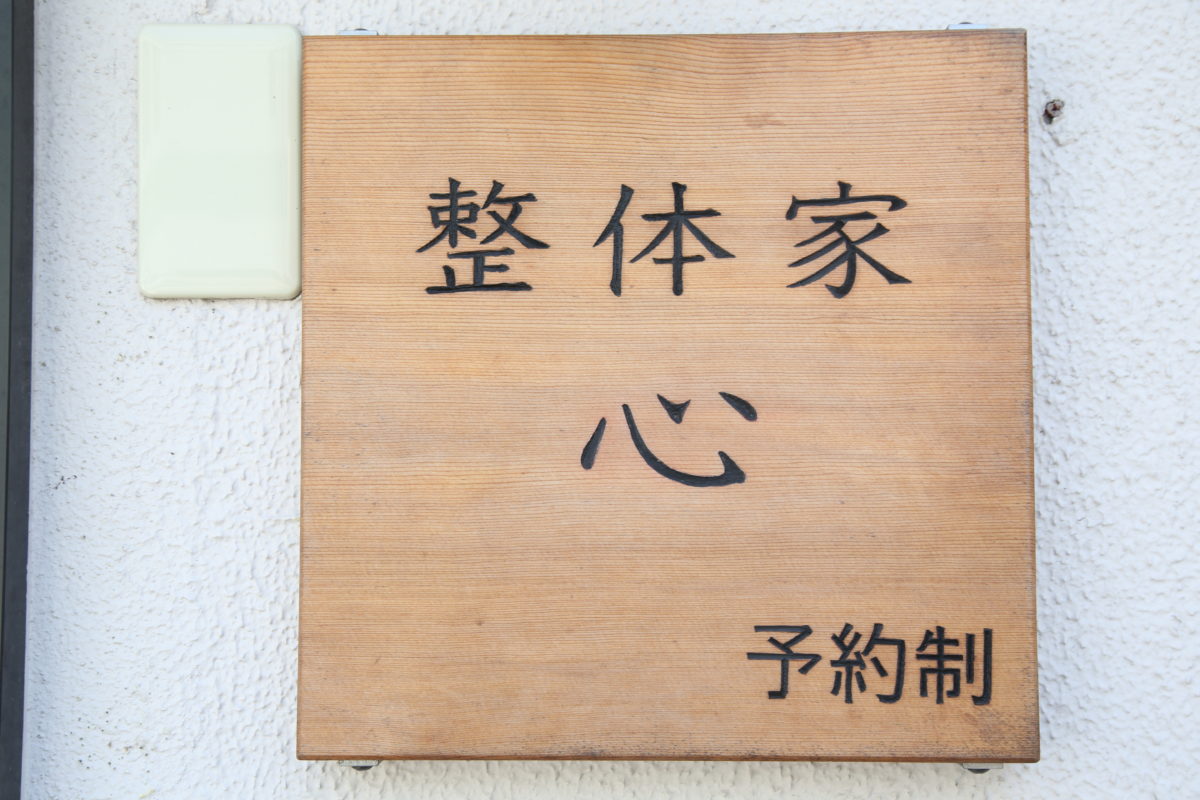 整体家
心
予約制